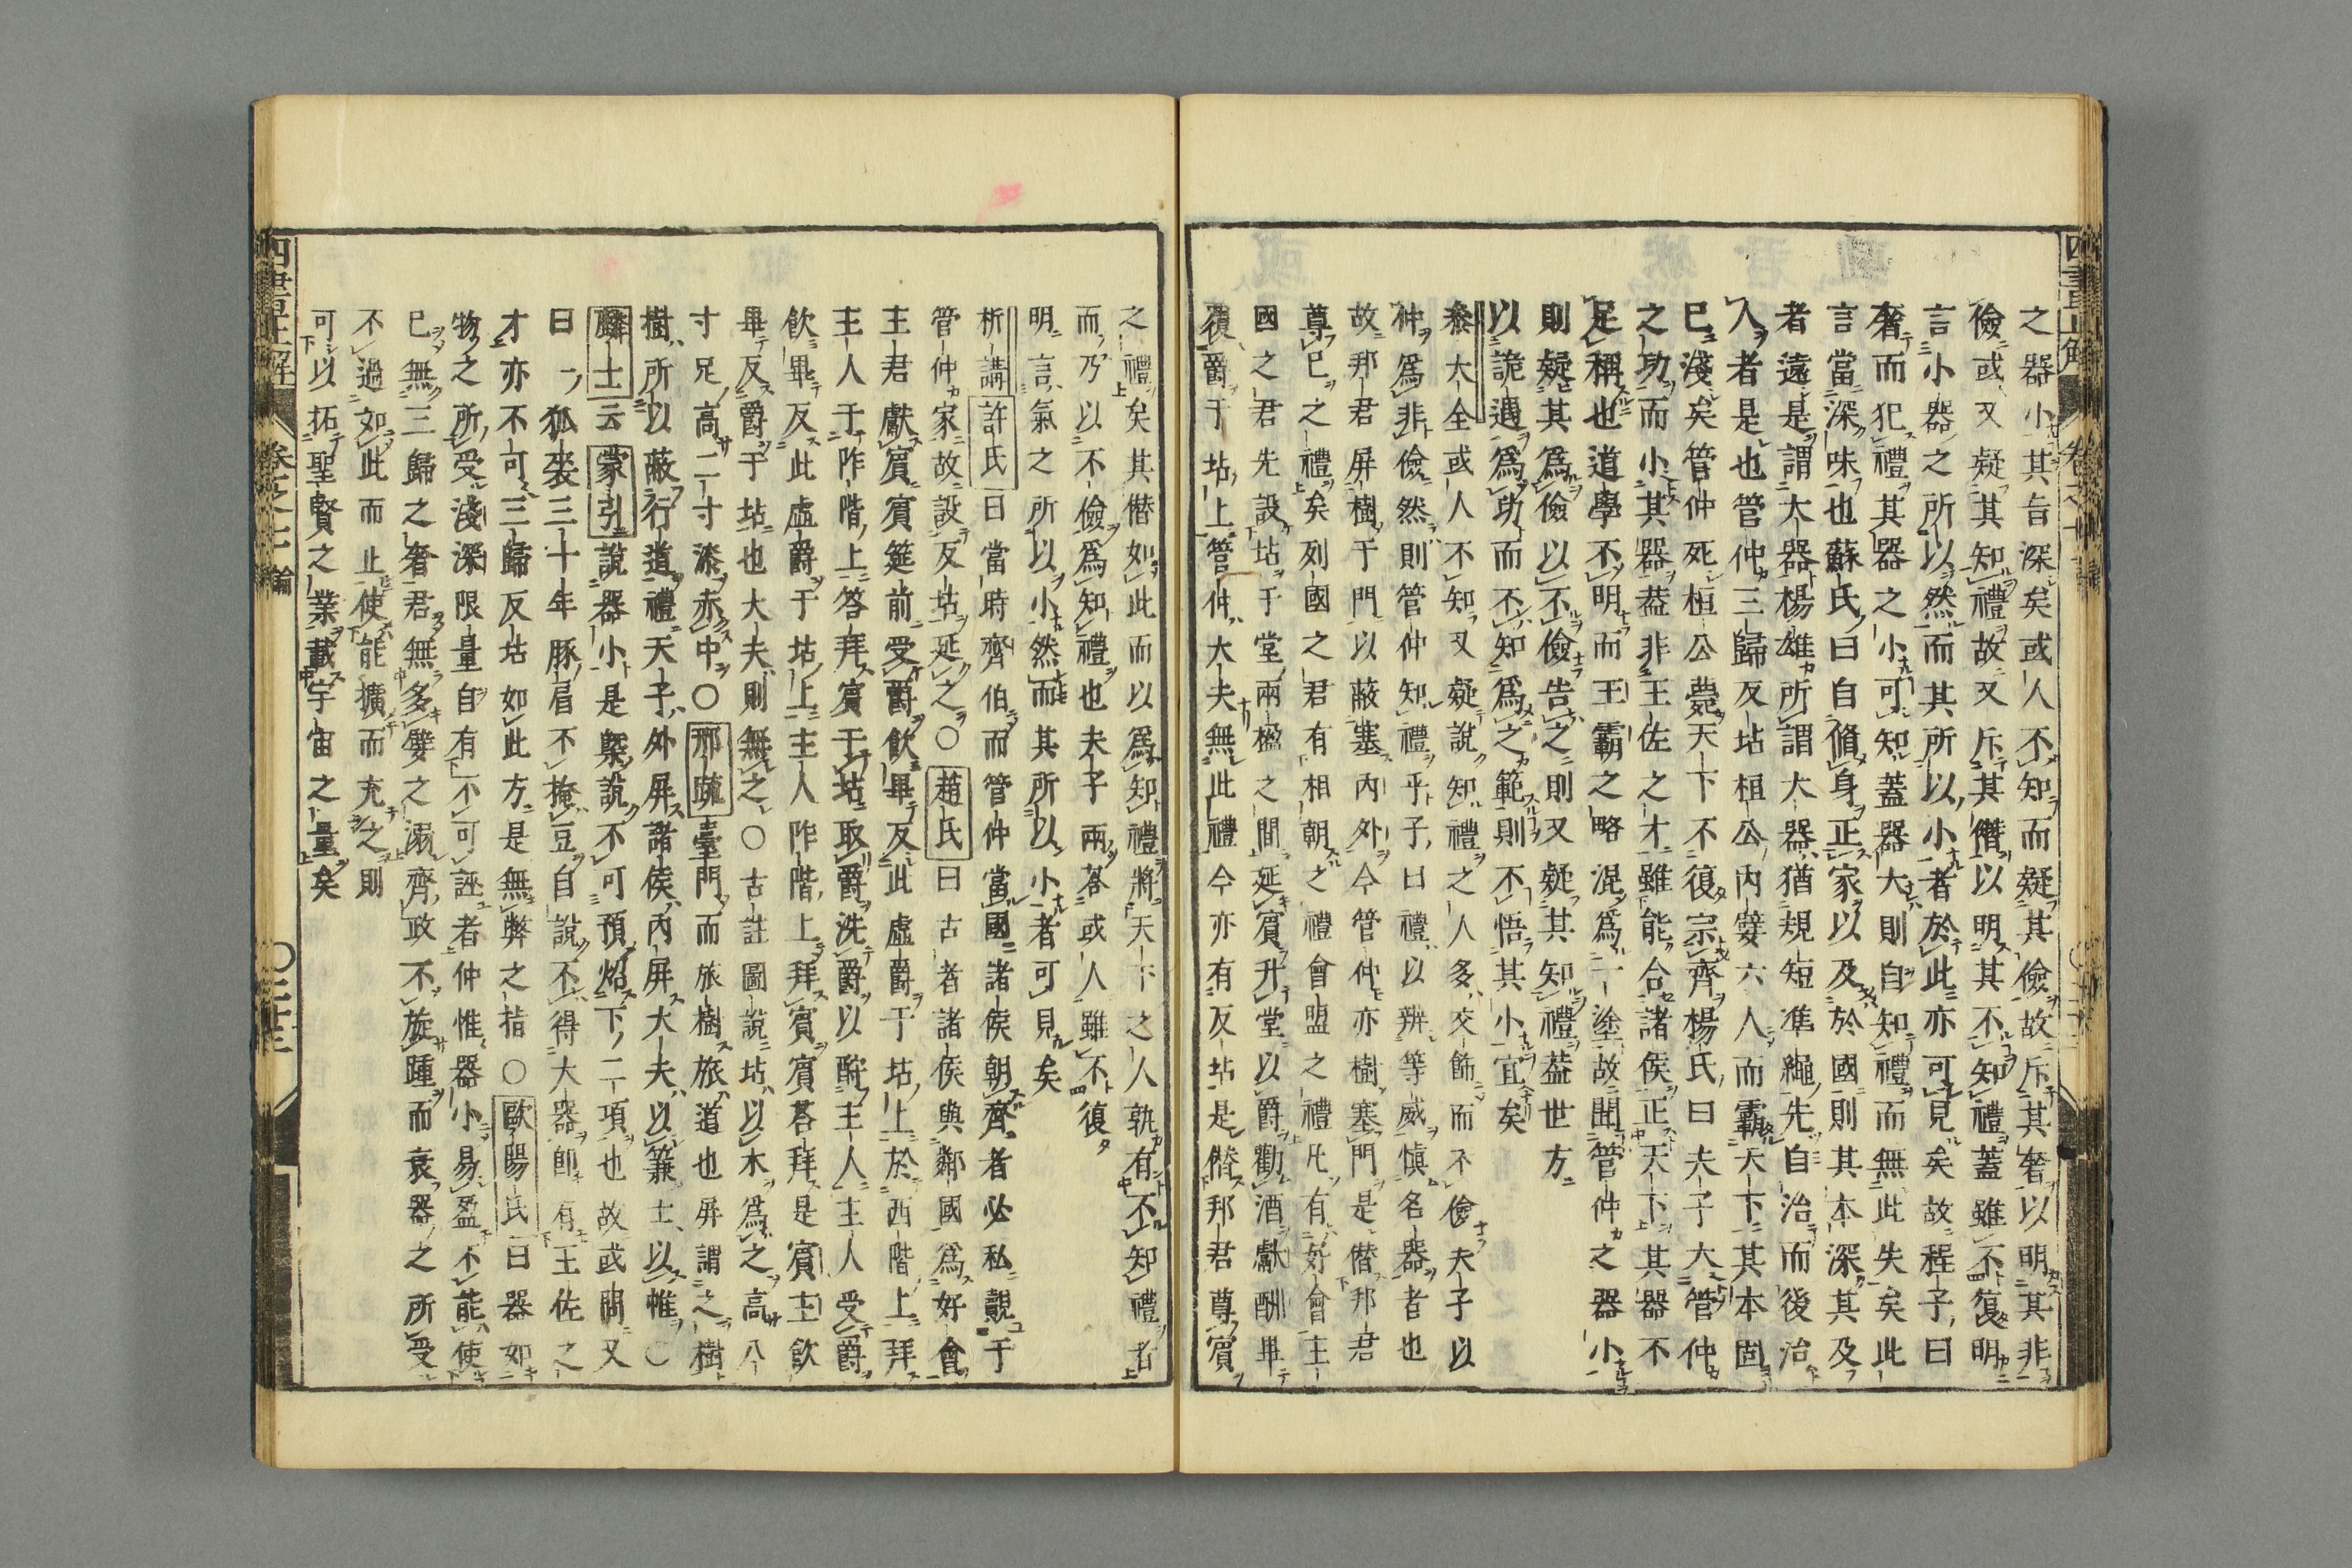 之器小其旨深矣或人不知而疑其儉故斥其奢以明其非
儉或又疑其知禮故又斥其僭以明其不知禮蓋雖不復明
言小器之所以然而其所以小者於此亦可見矣故程子曰
奢而犯禮其器之小可知蓋器大則自知禮而無此失矣此
言當深味也蘇氏曰自脩身正家以及於國則其本深其及
者遠是謂大器楊雄所謂大器猶規短準繩先自治而後治
人者是也管仲三歸反坫桓公內嬖六人而霸天下其本固
已淺矣管仲死桓公薨天下不復宗齊楊氏曰夫子大管仲
之功而小其器蓋非王佐之才雖能合諸侯正天下其器不
足稱也道學不明而王霸之略混爲一塗故聞管仲之器小
則疑其爲儉以不儉告之則又疑其知禮蓋世方
以詭遇爲功而不知爲之範則不悟其小宜矣
叅大全或人不知又疑說知禮之人多交飾而不儉夫子以
仲爲非儉然則管仲知禮乎子曰禮以辨等威愼名器者也
故邦君屏樹于門以蔽塞內外今管仲亦樹塞門是僭邦君
尊已之禮矣列國之君有相朝之禮會盟之禮凡有好會主
國之君先設坫于堂兩楹之間延賓升堂以爵勸酒獻酬畢
復爵于坫上管仲大夫無此禮今亦有反坫是僭邦君尊賓
之禮矣其僭如此而以爲知禮將天下之人孰有不知禮者
而乃以不儉爲知禮也夫子兩荅或人雖不復
明言氣之所以小然而其所以小者可見矣
析講許氏曰當時齊伯而管仲當國諸侯朝齊者必私覿于
管仲家故設反坫延之〇趙氏曰古者諸侯與鄰國爲好會
主君獻賓賓筵前受爵飲畢反此虛爵于坫上於西階上拜
主人于阼階上答拜賓于坫取爵洗爵以酢主人主人受爵
飲畢反此虛爵于坫上主人阼階上拜賓賓荅拜是賓主飲
畢反爵于坫也大夫則無之〇古註圖說坫以木爲之高八
寸足高二寸漆赤中〇邢疏臺門而旅樹旅道也屏謂之樹
樹所以蔽行道禮天子外屏諸侯內屏大夫以簾士以帷〇
麟士云蒙引說器小是槩說不可預炤下二項也故或問又
曰一狐裘三十年豚肩不掩豆自說不得大器卽有王佐之
才亦不可三歸反坫如此方是無弊之指〇歐陽氏曰器如
物之所受淺深限量自有不可誣者仲惟器小易盈不能使
已無三歸之奢君無多嬖之溺齊政不旋踵而衰器之所受
不過如此而止使能擴而充之則
可以拓聖賢之業載宇宙之量矣
四書正解
卷之七 論
〇三十三